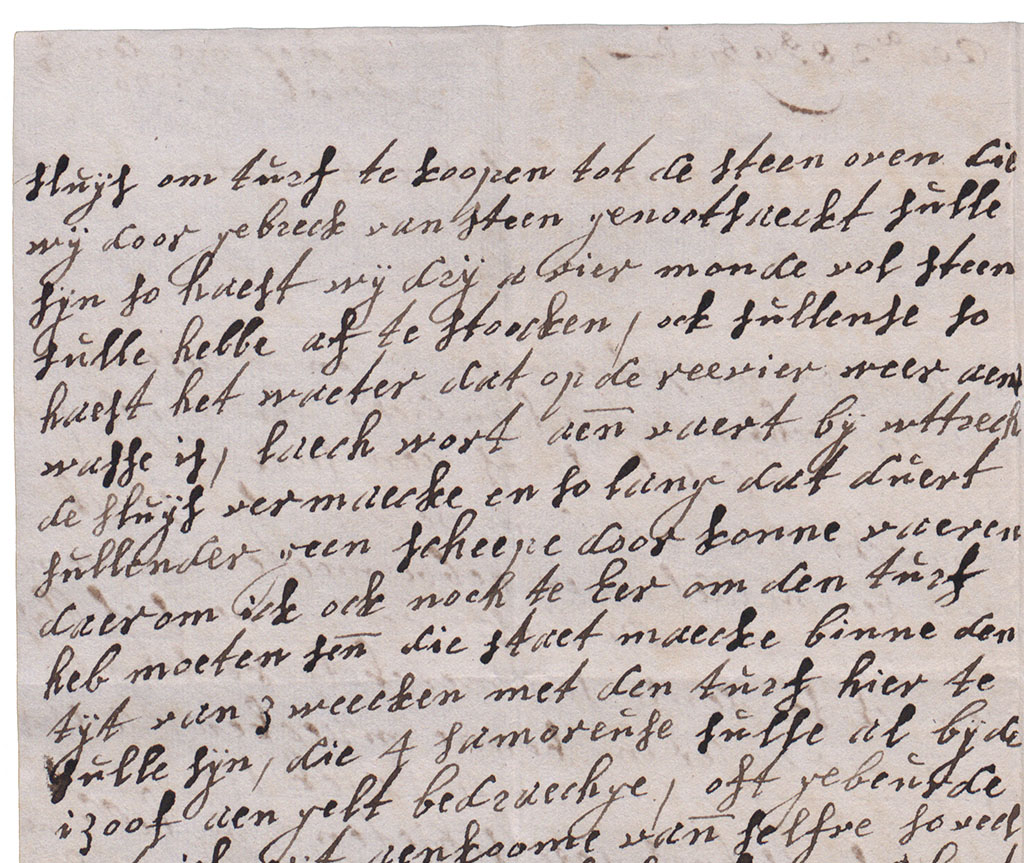 sluijs om turf te koopen tot de steen oven die
wij door gebreck van steen genootsaeckt sulle
sijn so haest wij drij a vier monde vol steen
sulle hebbe af te stoocken, ock sullense so
haest het waeter dat op de reevier weer aen
wasse is, laech wort aen̅ vaert bij uttrech
de sluijs vermaecke en so lang dat duert
sullender geen scheepe door konne vaeren
daerom ick ock noch te ker om den turf
heb moeten sen̅ die staet maecke binne den
tijt van 3 weecken met den turf hier te
sulle sijn, die 4 samoreuse sulle al bijde
i3oof aen gelt bedraechge, oft gebeurde
aenkoome van̅ selfve so veel